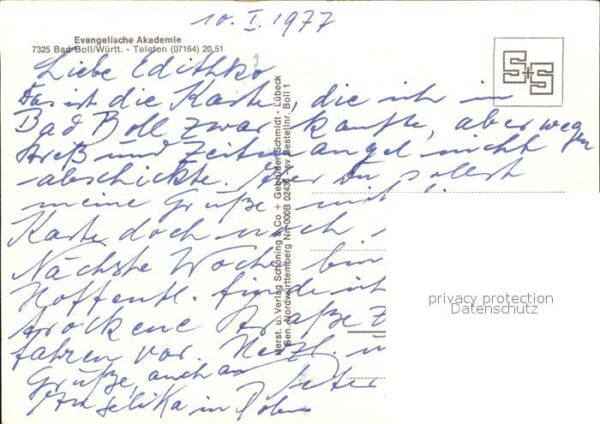 10. I. 1977
Evangelische Akademie
7325 Bad Boll/Württ. - Telefon (07164) 20 51
S+S
Liebe
Das ist die Karte, die ich in
Bad Boll zwar kaufte, aber wegen
Streß und Zeitmangel nicht
abschickte. Aber Du sollst
meine Grüße mit
Karte doch noch
Nächste Woche bin
Hoffentl. finde ich
trockene Straße z
fahren vor. Herzl. u
Grüße, auch an Peter
Angelika in
Herst. u. Verlag Schöning & Co + Gebrüder Schmidt - Lübeck
Gen. Nordwürttemberg Nr. 000B 02436 - sv Bestell.nr. Boll 1
privacy protection
Datenschutz